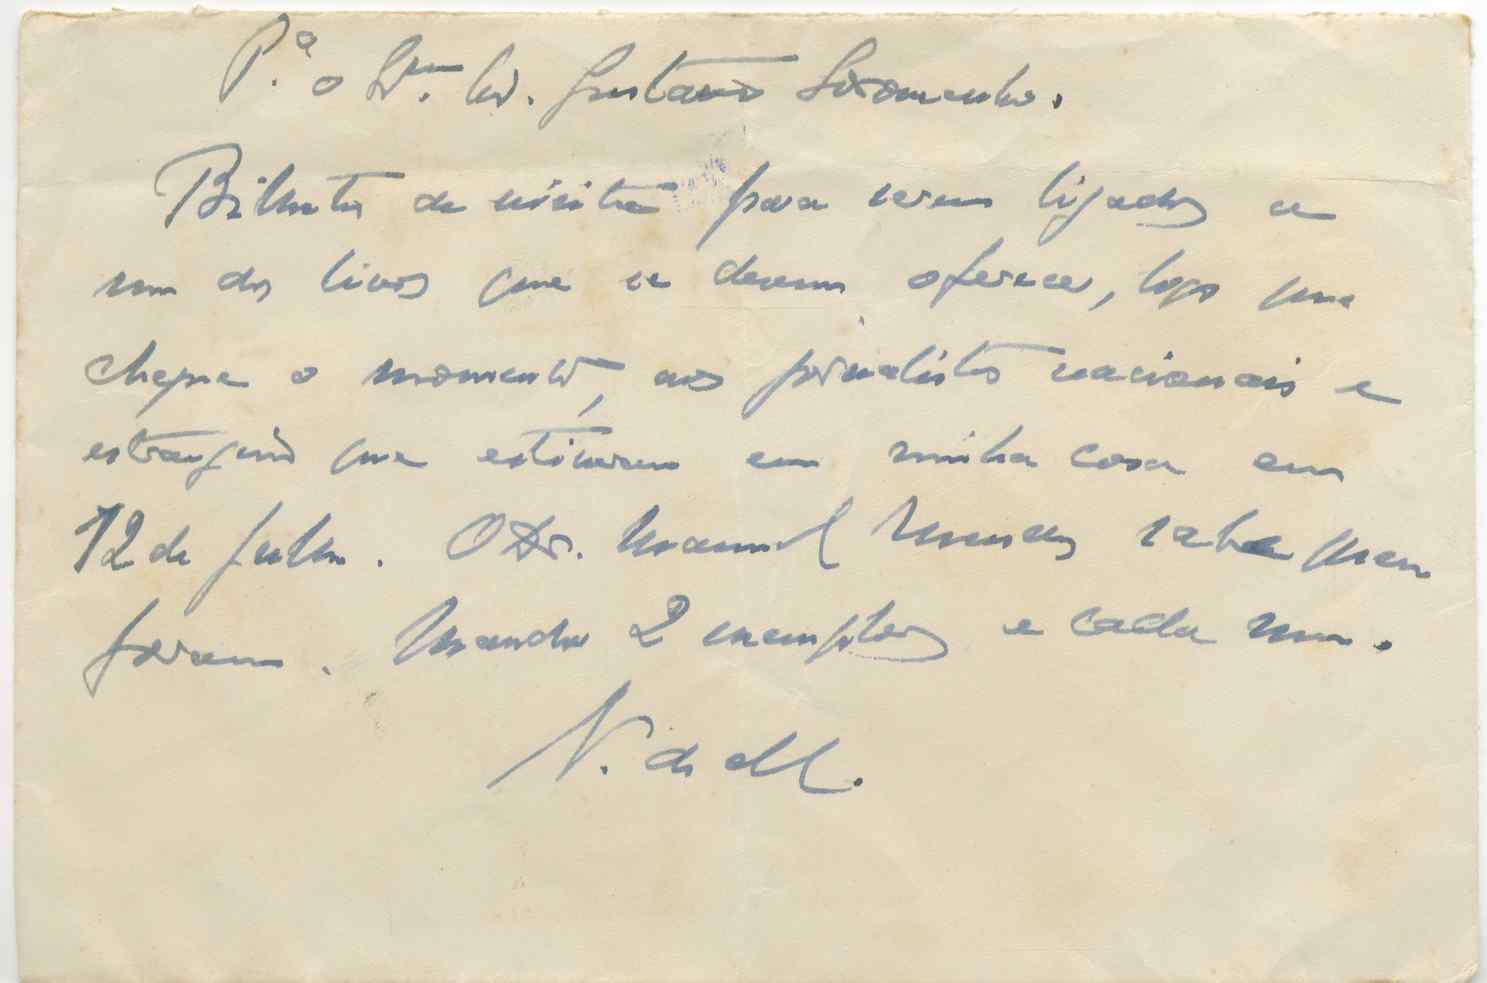 P.ª o Sr. Dr. Gustavo Soromenho.
Bilhetes de visita para serem ligados a
um dos livros que se devem oferecer, logo que
chegue o momento, aos jornalistas nacionais e
estrangeiros que estiveram em minha casa em
12 de Julho. O Dr. Manuel Mendes sabe quem
foram. Mandar 2 exemplares a cada um.
N. de M.